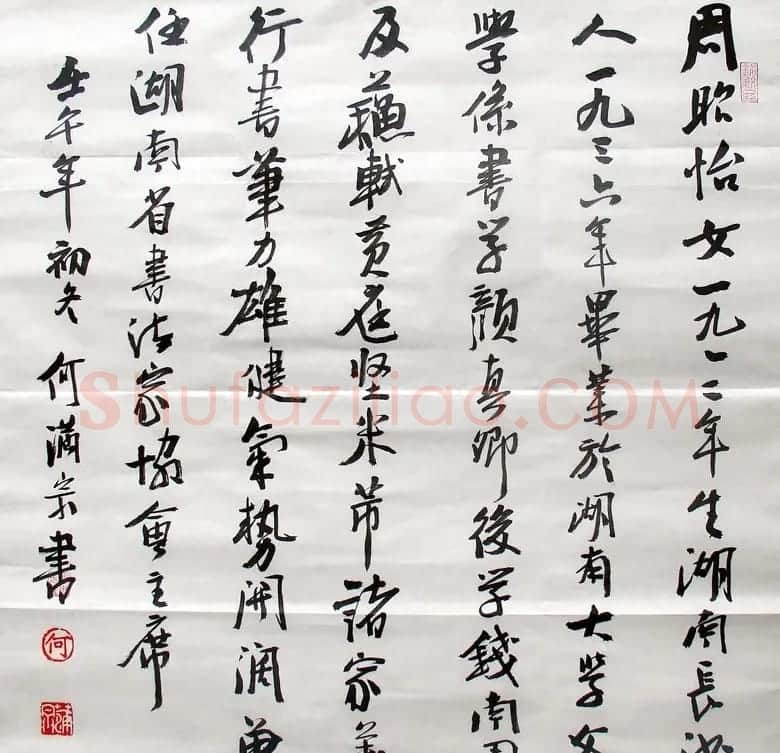 周昭怡女一九一二年生湖南長沙
人一九三六年畢業於湖南大學文
學係書学顏真卿後学錢南園
及蘇軾黄庭坚米芾諸家
行書筆力雄健氣勢開濶
任湖南省書法家協會主席
壬午年初冬何满宗書
何
shufaziliao.COM